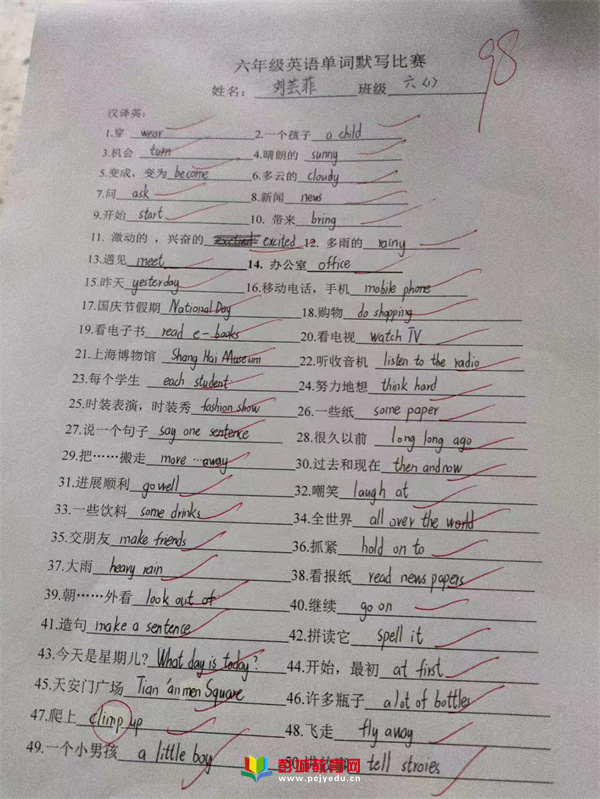 六年级英语单词默写比赛
98
姓名： 刘芸菲 班级 六(1)
汉译英：
1.穿 wear 2.一个孩子 a child
3.机会 turn 4.晴朗的 sunny
5.变成，变为 become 6.多云的 cloudy
7.问 ask 8.新闻 news
9.开始 start 10. 带来 bring
11. 激动的 ，兴奋的 excited 12. 多雨的 rainy
13.遇见 meet 14. 办公室 office
15.昨天 yesterday 16.移动电话，手机 mobile phone
17.国庆节假期 National Day 18.购物 do shopping
19.看电子书 read e-books 20.看电视 watch TV
21.上海博物馆 Shang Hai Museum 22.听收音机 listen to the radio
23.每个学生 each student 24.努力地想 think hard
25.时装表演，时装秀 fashion show 26.一些纸 some paper
27.说一个句子 say one sentence 28.很久以前 long long ago
29.把……搬走 more …away 30.过去和现在 then and now
31.进展顺利 go well 32.嘲笑 laugh at
33.一些饮料 some drinks 34.全世界 all over the world
35.交朋友 make friends 36.抓紧 hold on to
37.大雨 heavy rain 38.看报纸 read news papers
39.朝……外看 look out of 40.继续 go on
41.造句 make a sentence 42.拼读它 spell it
43.今天是星期几？ What day is today? 44.开始，最初 at first
45.天安门广场 Tian'anmen Square 46.许多瓶子 a lot of bottles
47.爬上 climp up 48.飞走 fly away
49.一个小男孩 a little boy tell stroies
彭城教育网
www.pcjyedu.cn